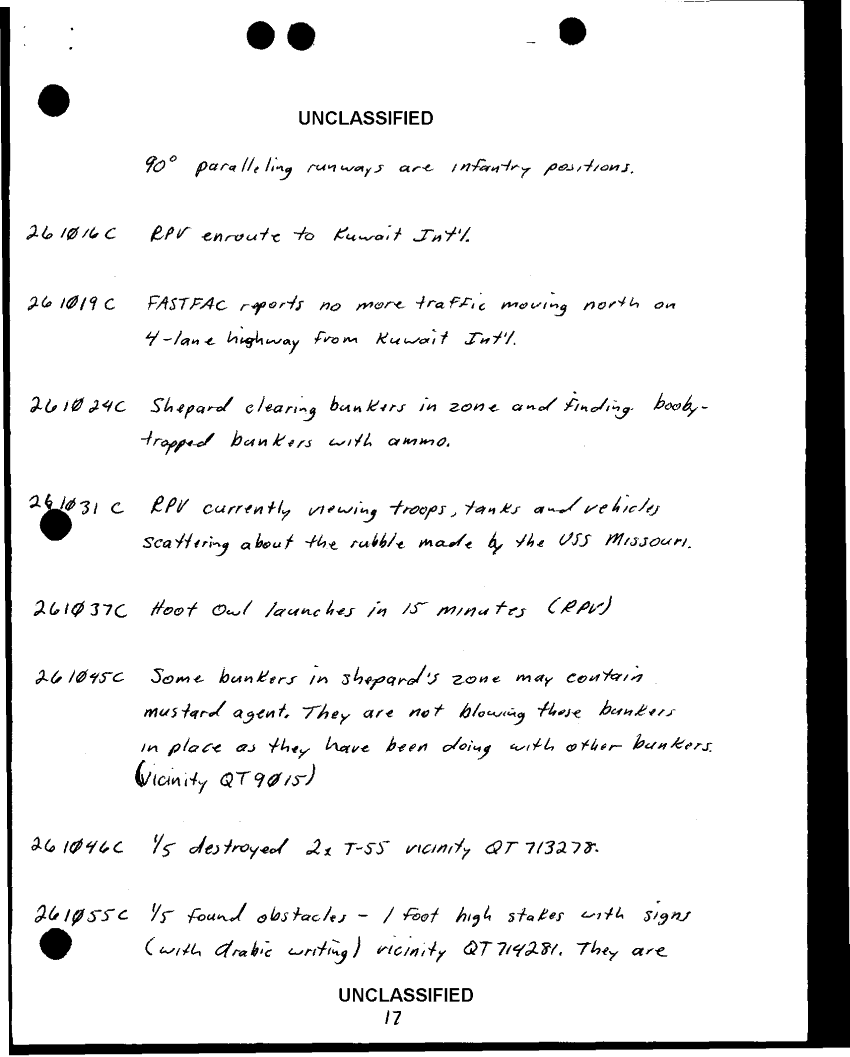 UNCLASSIFIED
90° paralleling runways are infantry positions.
261Ø16C RPV enroute to Kuwait Int'l.
261Ø19C FASTFAC reports no more traffic moving north on
4-lane highway from Kuwait Int'l.
261Ø24C Shepard clearing bunkers in zone and finding booby-
trapped bunkers with ammo.
261Ø31C RPV currently viewing troops, tanks and vehicles
scattering about the rubble made by the USS Missouri.
261Ø37C Hoot Owl launches in 15 minutes (RPV)
261Ø45C Some bunkers in shepard's zone may contain
mustard agent. They are not blowing these bunkers
in place as they have been doing with other bunkers.
(Vicinity QT9Ø15)
261Ø46C 1/5 destroyed 2x T-55 vicinity QT 713278.
261Ø55C 1/5 found obstacles - 1 foot high stakes with signs
(with Arabic writing) vicinity QT714281. They are
UNCLASSIFIED
17